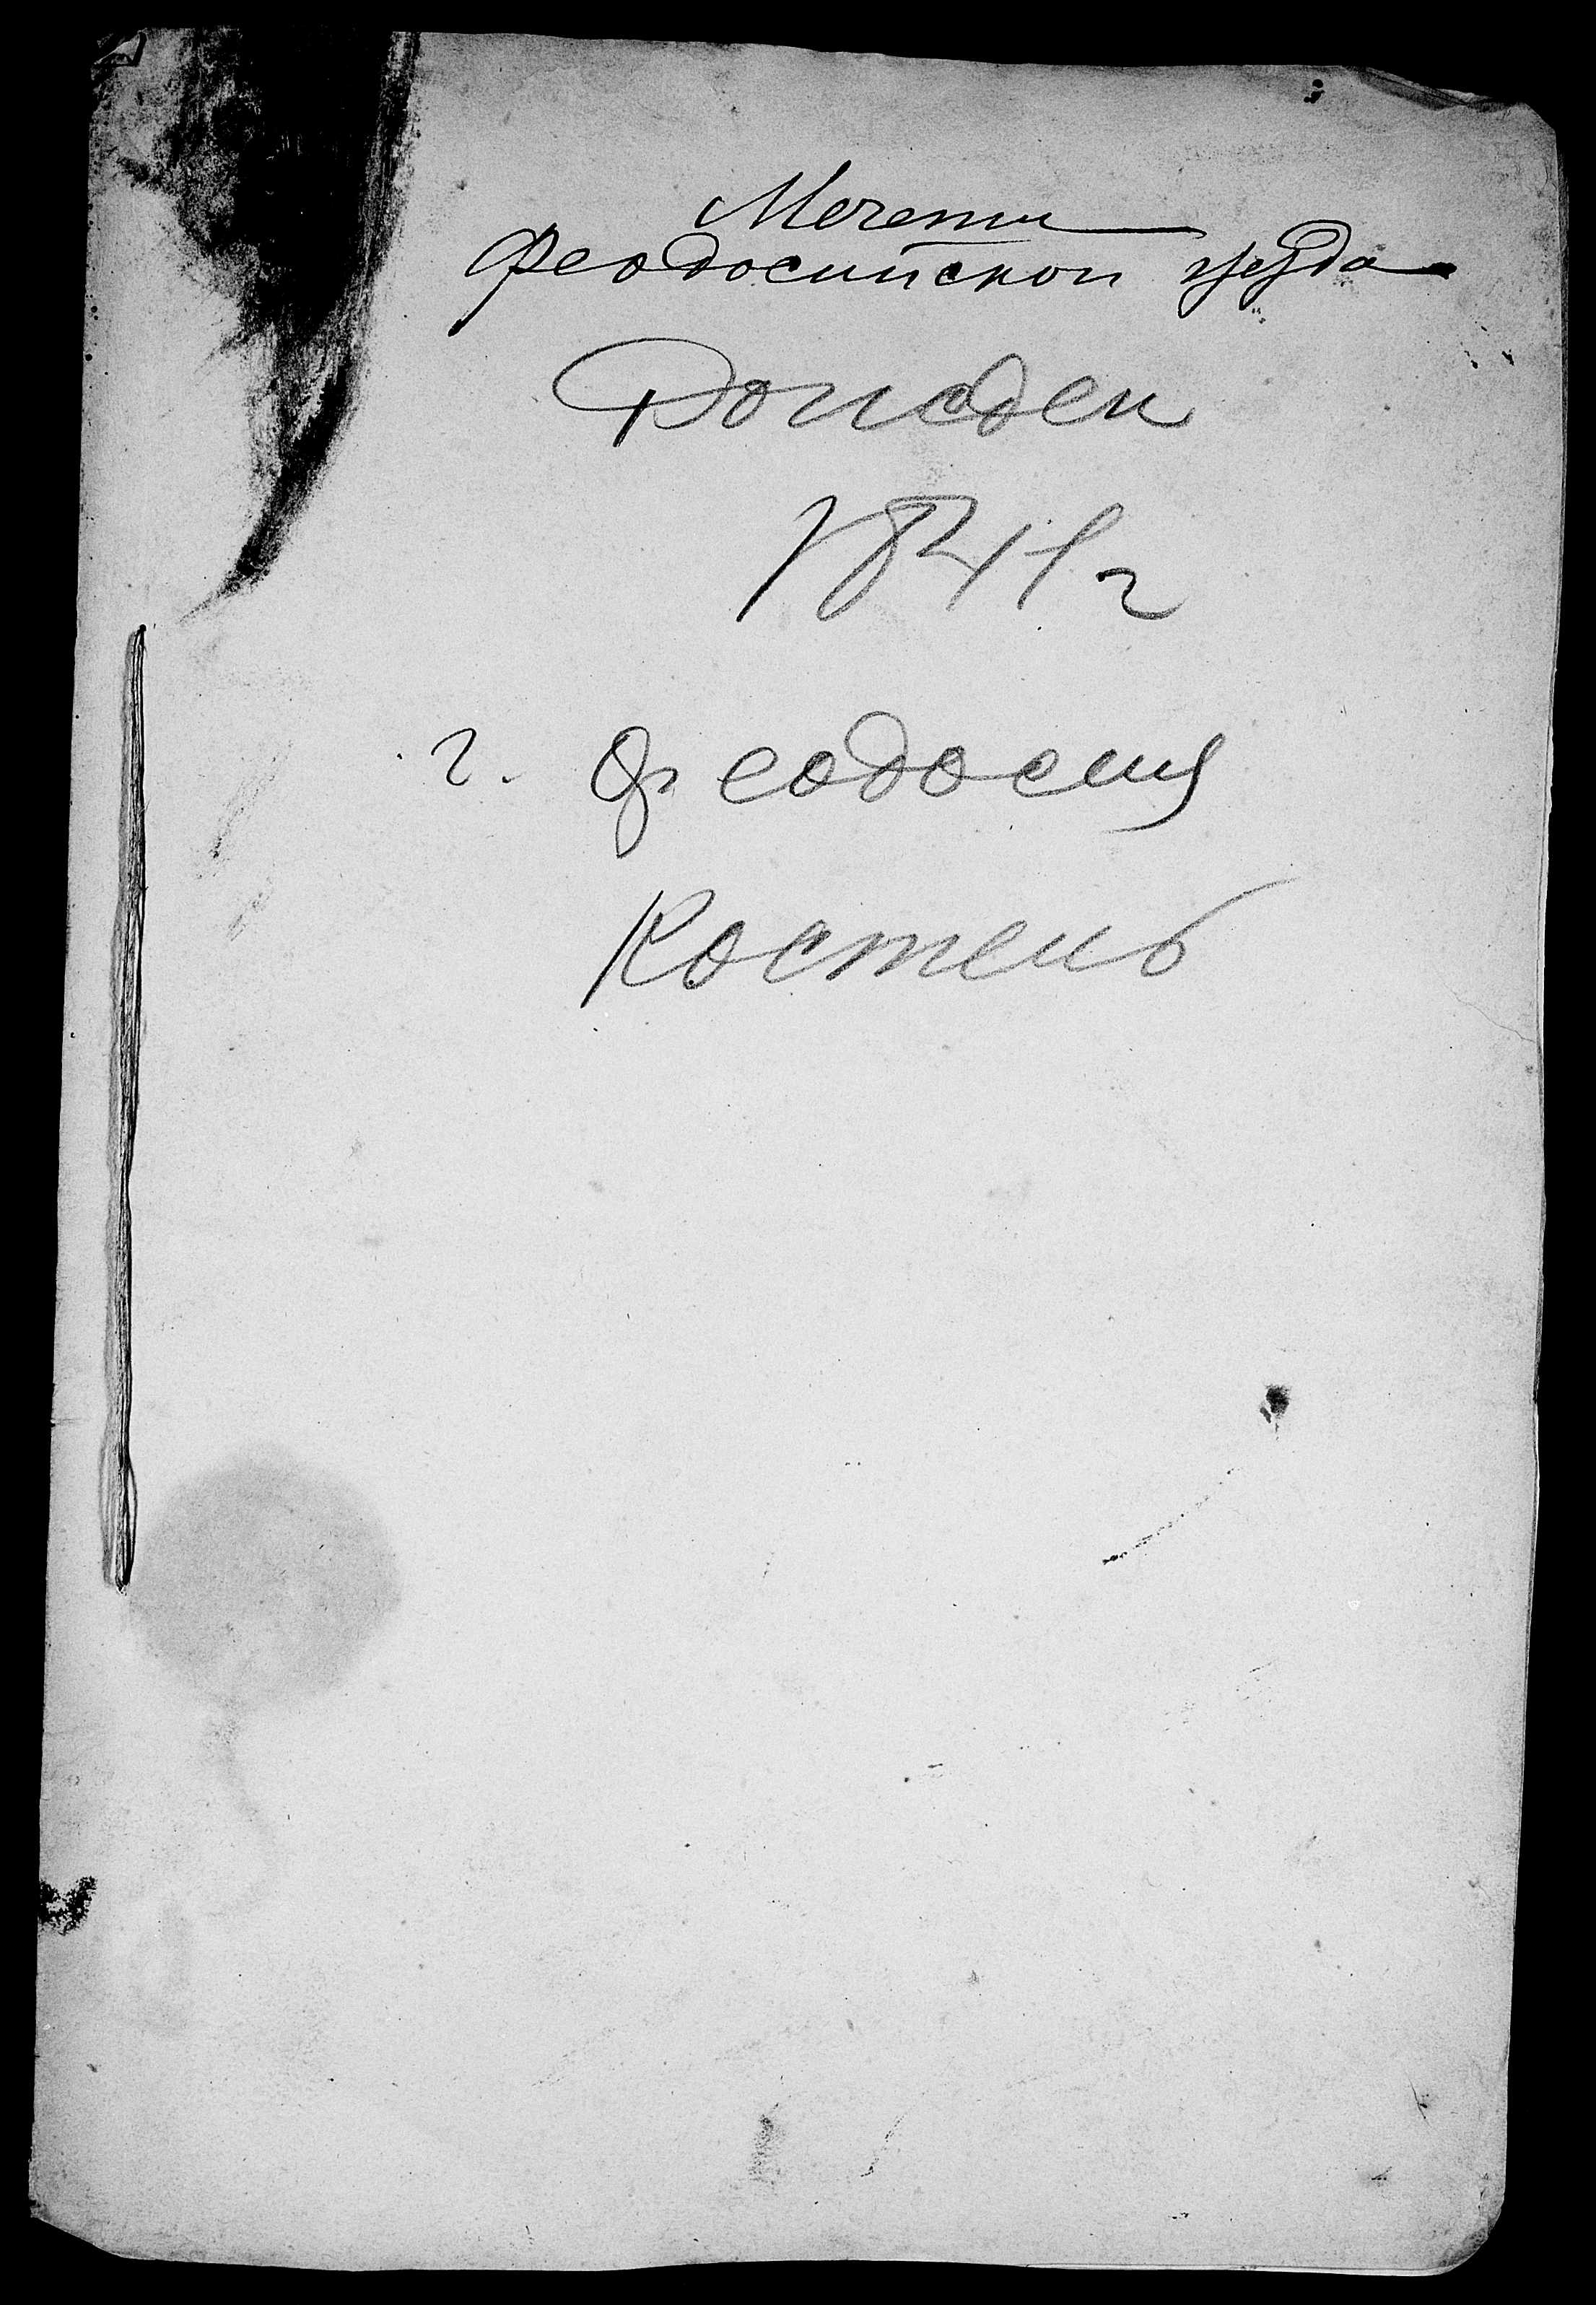 Мечети
Феодосийской уезда
1841 г
г. Феодосия
Костень